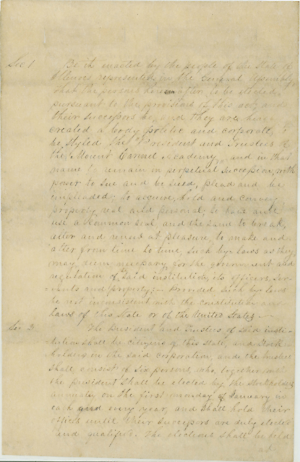 Sec 1 Be it enacted by the people of the State of
Illinois represented in the General Assembly
That the persons hereinafter to be elected,
pursuant to the provisions of this act, and
their successors be, and they are hereby
created a body politic and corporate, to
be styled The President and Trustees of
the Mount Carmel Academy, and in that
name to remain in perpetual succession, with
power to sue and be sued, plead and be
impleaded, to acquire, hold and convey
property, real and personal, to have and
use a common seal, and the same to break,
alter and at pleasure, to make and
alter from time to time, such by-laws as they
may deem necessary for the government and
regulation of said institution, its officers, ser-
vants and property. Provided such by laws
be not inconsistent with the constitution and
laws of this State or of the United States
Sec 2. The President and Trustees of said insti-
tution shall be citizens of this State, and Stock
holders in the said corporation, and the number
shall consist of six persons who, together with
the president shall be elected by the Stockholders
annually on the first monday of January in
each and every year, and shall hold their
offices until their successors are duly elected
and qualified. The elections shall be held